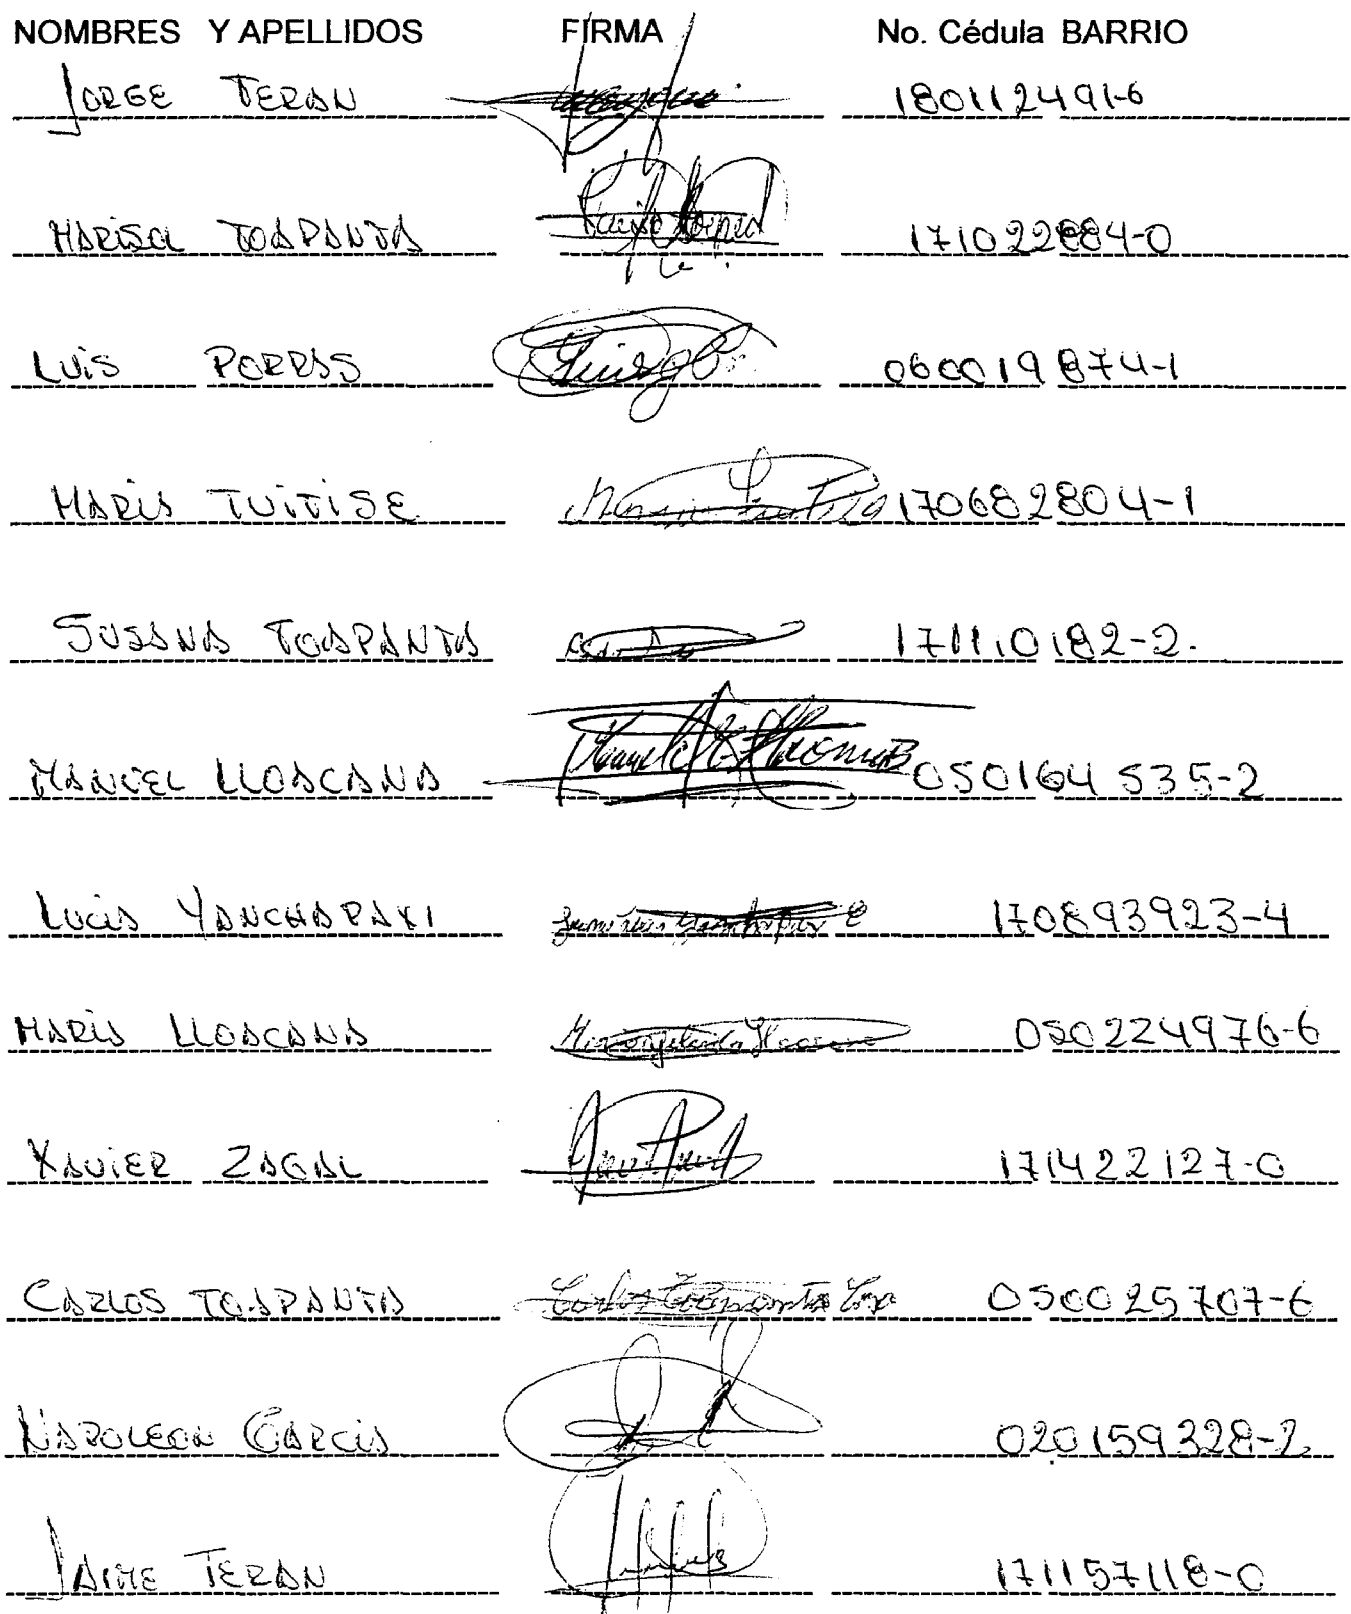 NOMBRES Y APELLIDOS FIRMA No. Cédula BARRIO
JORGE TERAN 180112491-6
MARISOL TOAPANTA 171022884-0
LUIS PORRAS 060019874-1
MARIA TUITISE 170682804-1
SUSANA TOAPANTA 171110182-2.
MANUEL LLOACANA 050164535-2
LUCIA YANCHAPAXI 170893923-4
MARIA LLOACANA 050224976-6
XAVIER ZAGAL 171422127-0
CARLOS TOAPANTA 050025707-6
NAPOLEON GARCIA 020159328-2
JAIME TERAN 171157118-0